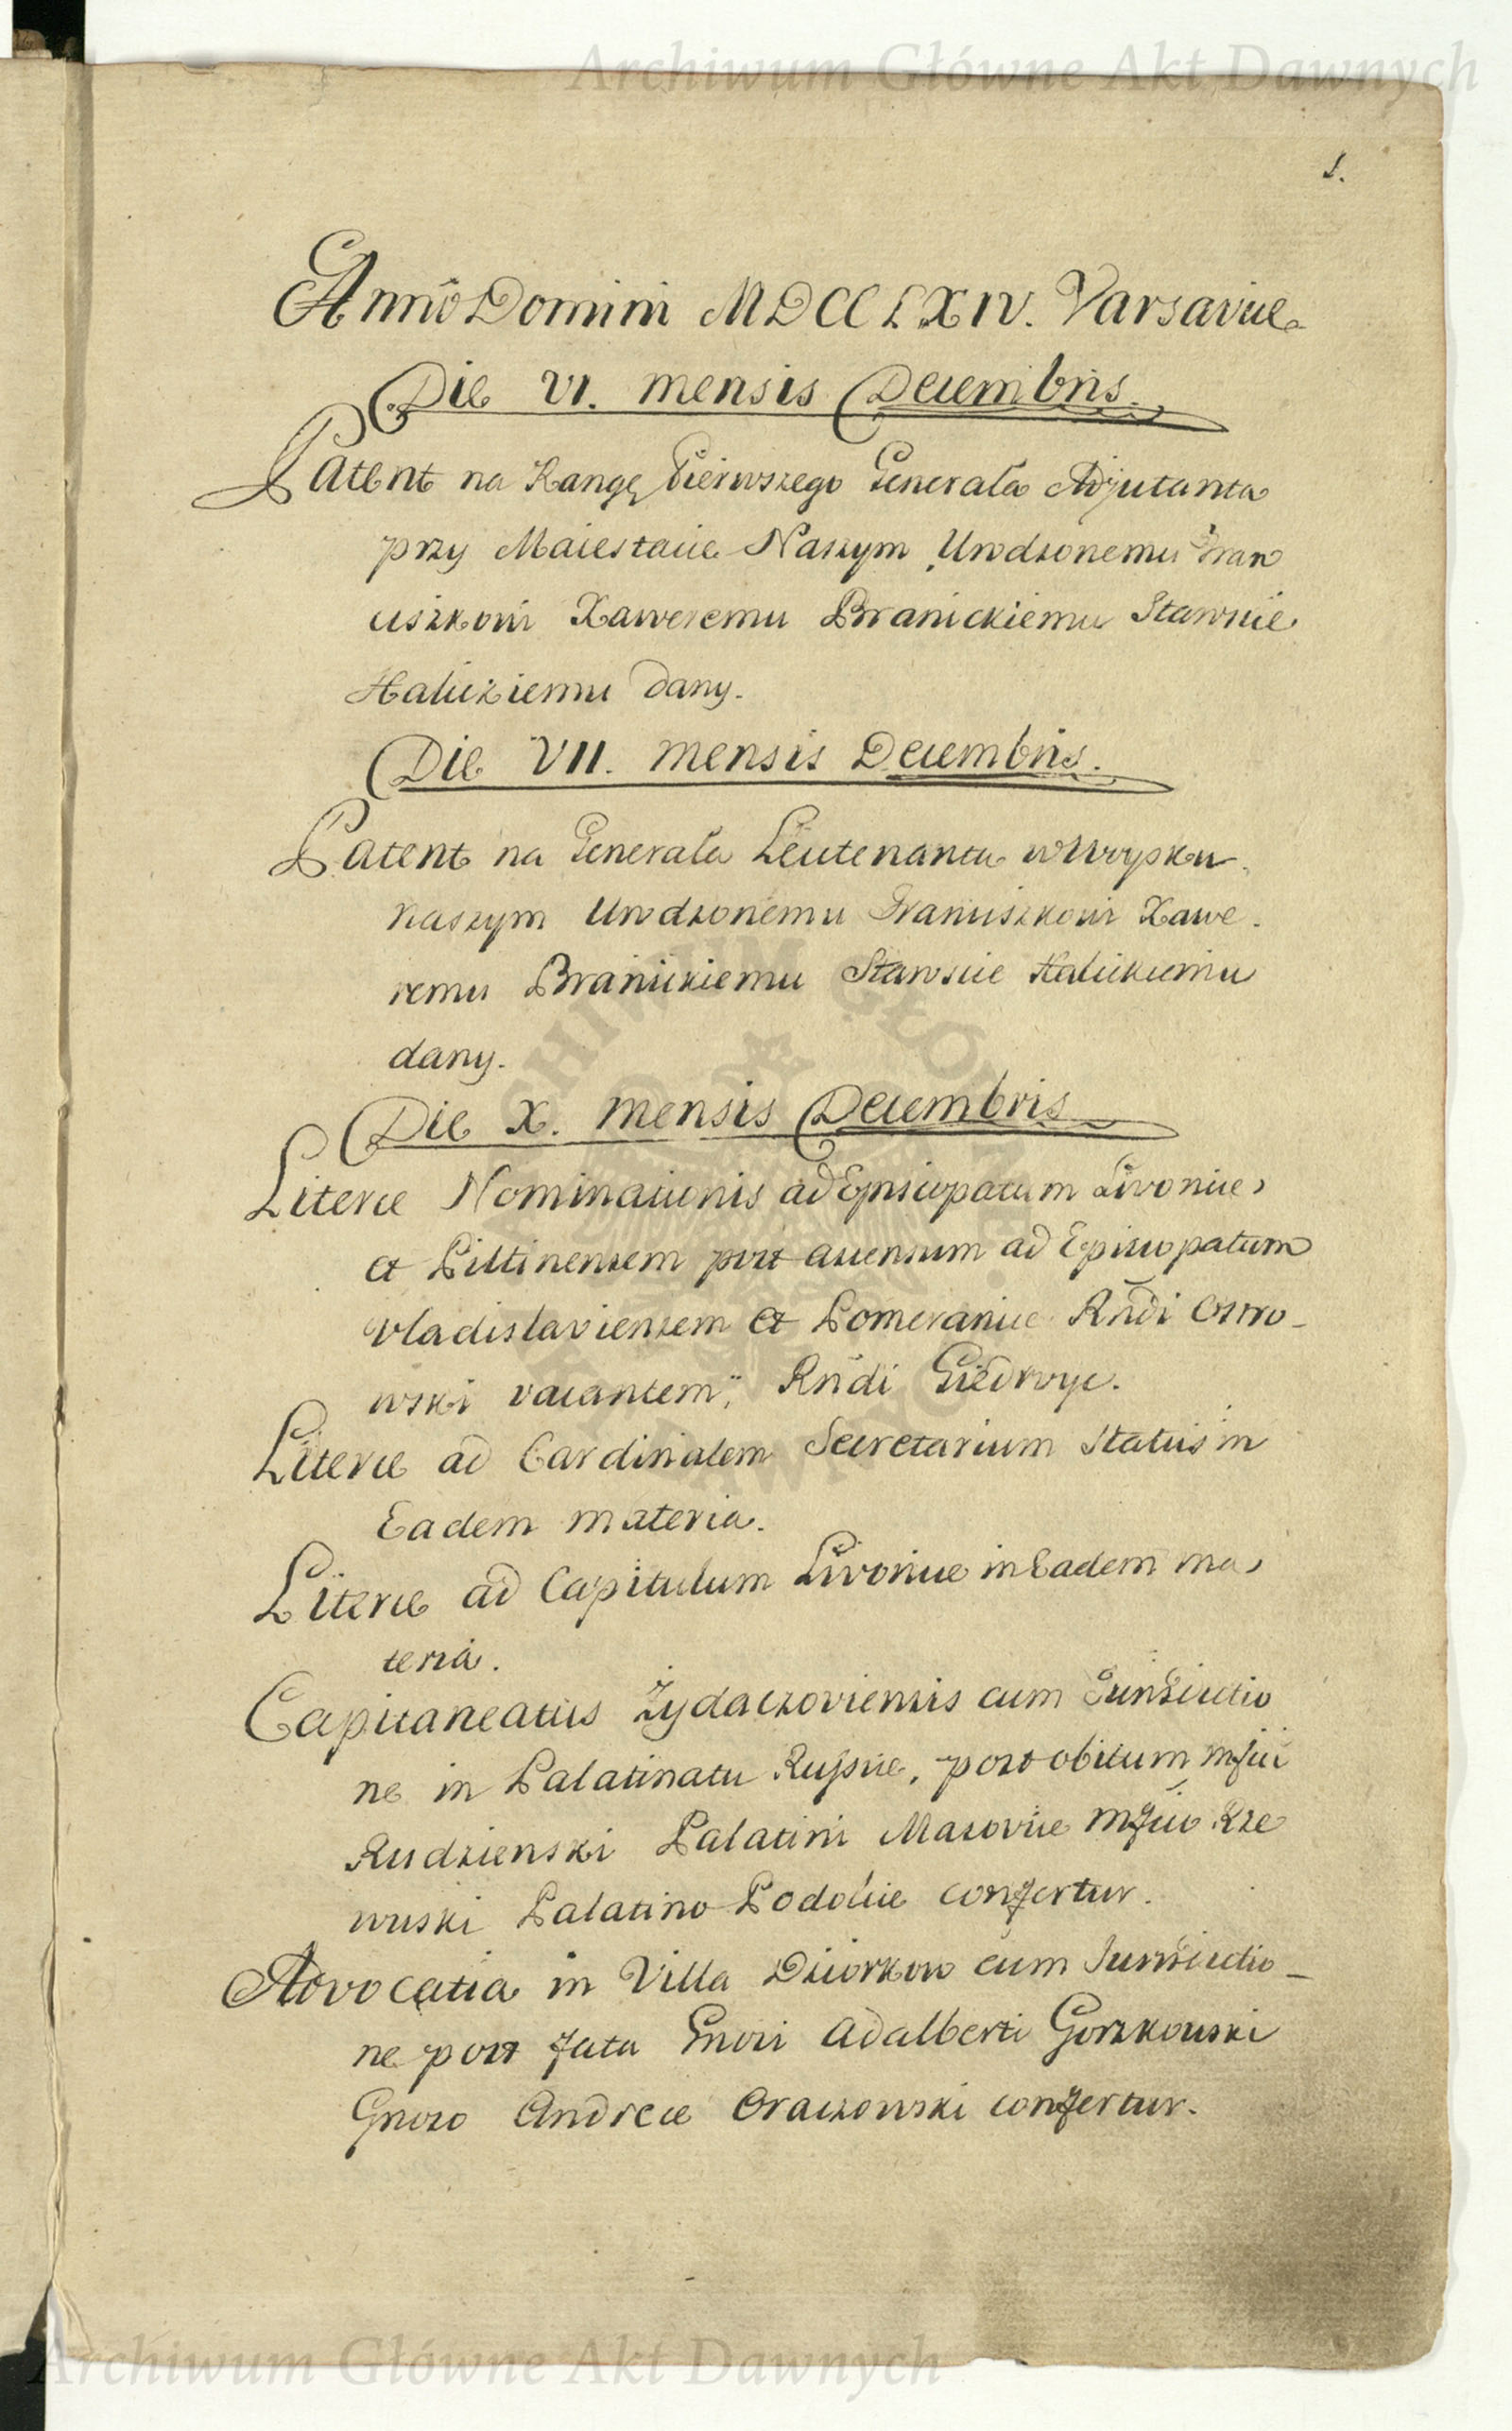 Archiwum Główne Akt Dawnych
1.
Anno Domini MDCCLXIV. Varsaviæ
Die VI. mensis Decembris.
Patent na Rangę Pierwszego Generała Adjutanta
przy Maiestacie Naszym Urodzonemu Fran
ciszkowi Xaweremu Branickiemu Staroście
Halickiemu dany.
Die VII. mensis Decembris.
Patent na Generała Leutenanta w Woysku
naszym Urodzonemu Franciszkowi Xawe.
remu Branickiemu Staroście Halickiemu
dany.
Die X. mensis Decembris
Literæ Nominationis ad Episcopatum Livoniæ
et Piltinensem post ascensum ad Episcopatum
Vladislaviensem et Pomeraniæ Rñdi Ostro-
wski vacantem, Rñdi Giedroyc.
Literæ ad Cardinalem Secretarium Status in
Eadem materia.
Literæ ad Capitulum Livoniæ in Eadem ma
teria.
Capitaneatus Żydaczoviensis cum Jurisdictio
ne in Palatinatu Russiæ, post obitum Mfici
Rudzienski Palatini Masoviæ Mfico Rze
wuski Palatino Podoliæ confertur.
Advocatia in Villa cum Jurisdictio-
ne post fata Gnosi Adalberti Gorzkowski
Gnoso Andreæ Oraczowski confertur.
Archiwum Główne Akt Dawnych